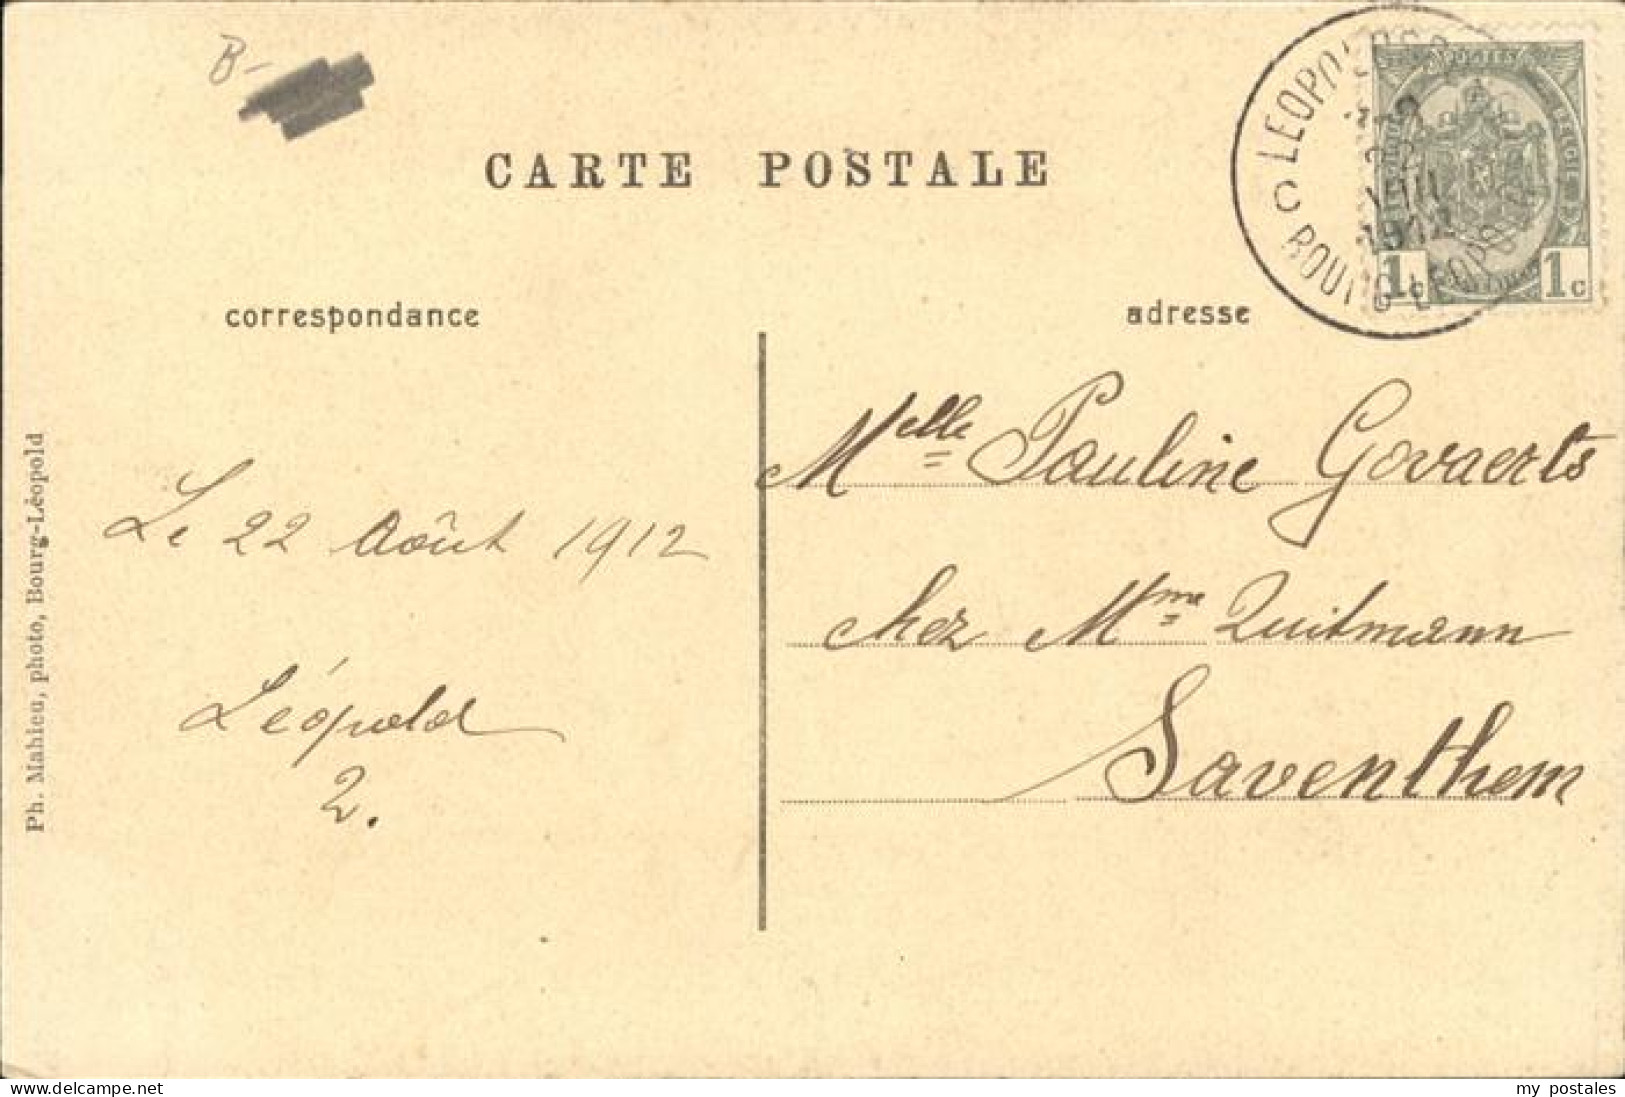 B-
CARTE POSTALE
correspondance
adresse
POSTES
BELGIE
1c
1c
1912
Melle Pauline Govaerts
chez Mme Quitmann
Saventhem
Le 22 Août 1912
Léopold
2.
Ph. Mahieu, photo, Bourg-Léopold
www.delcampe.net
my postales